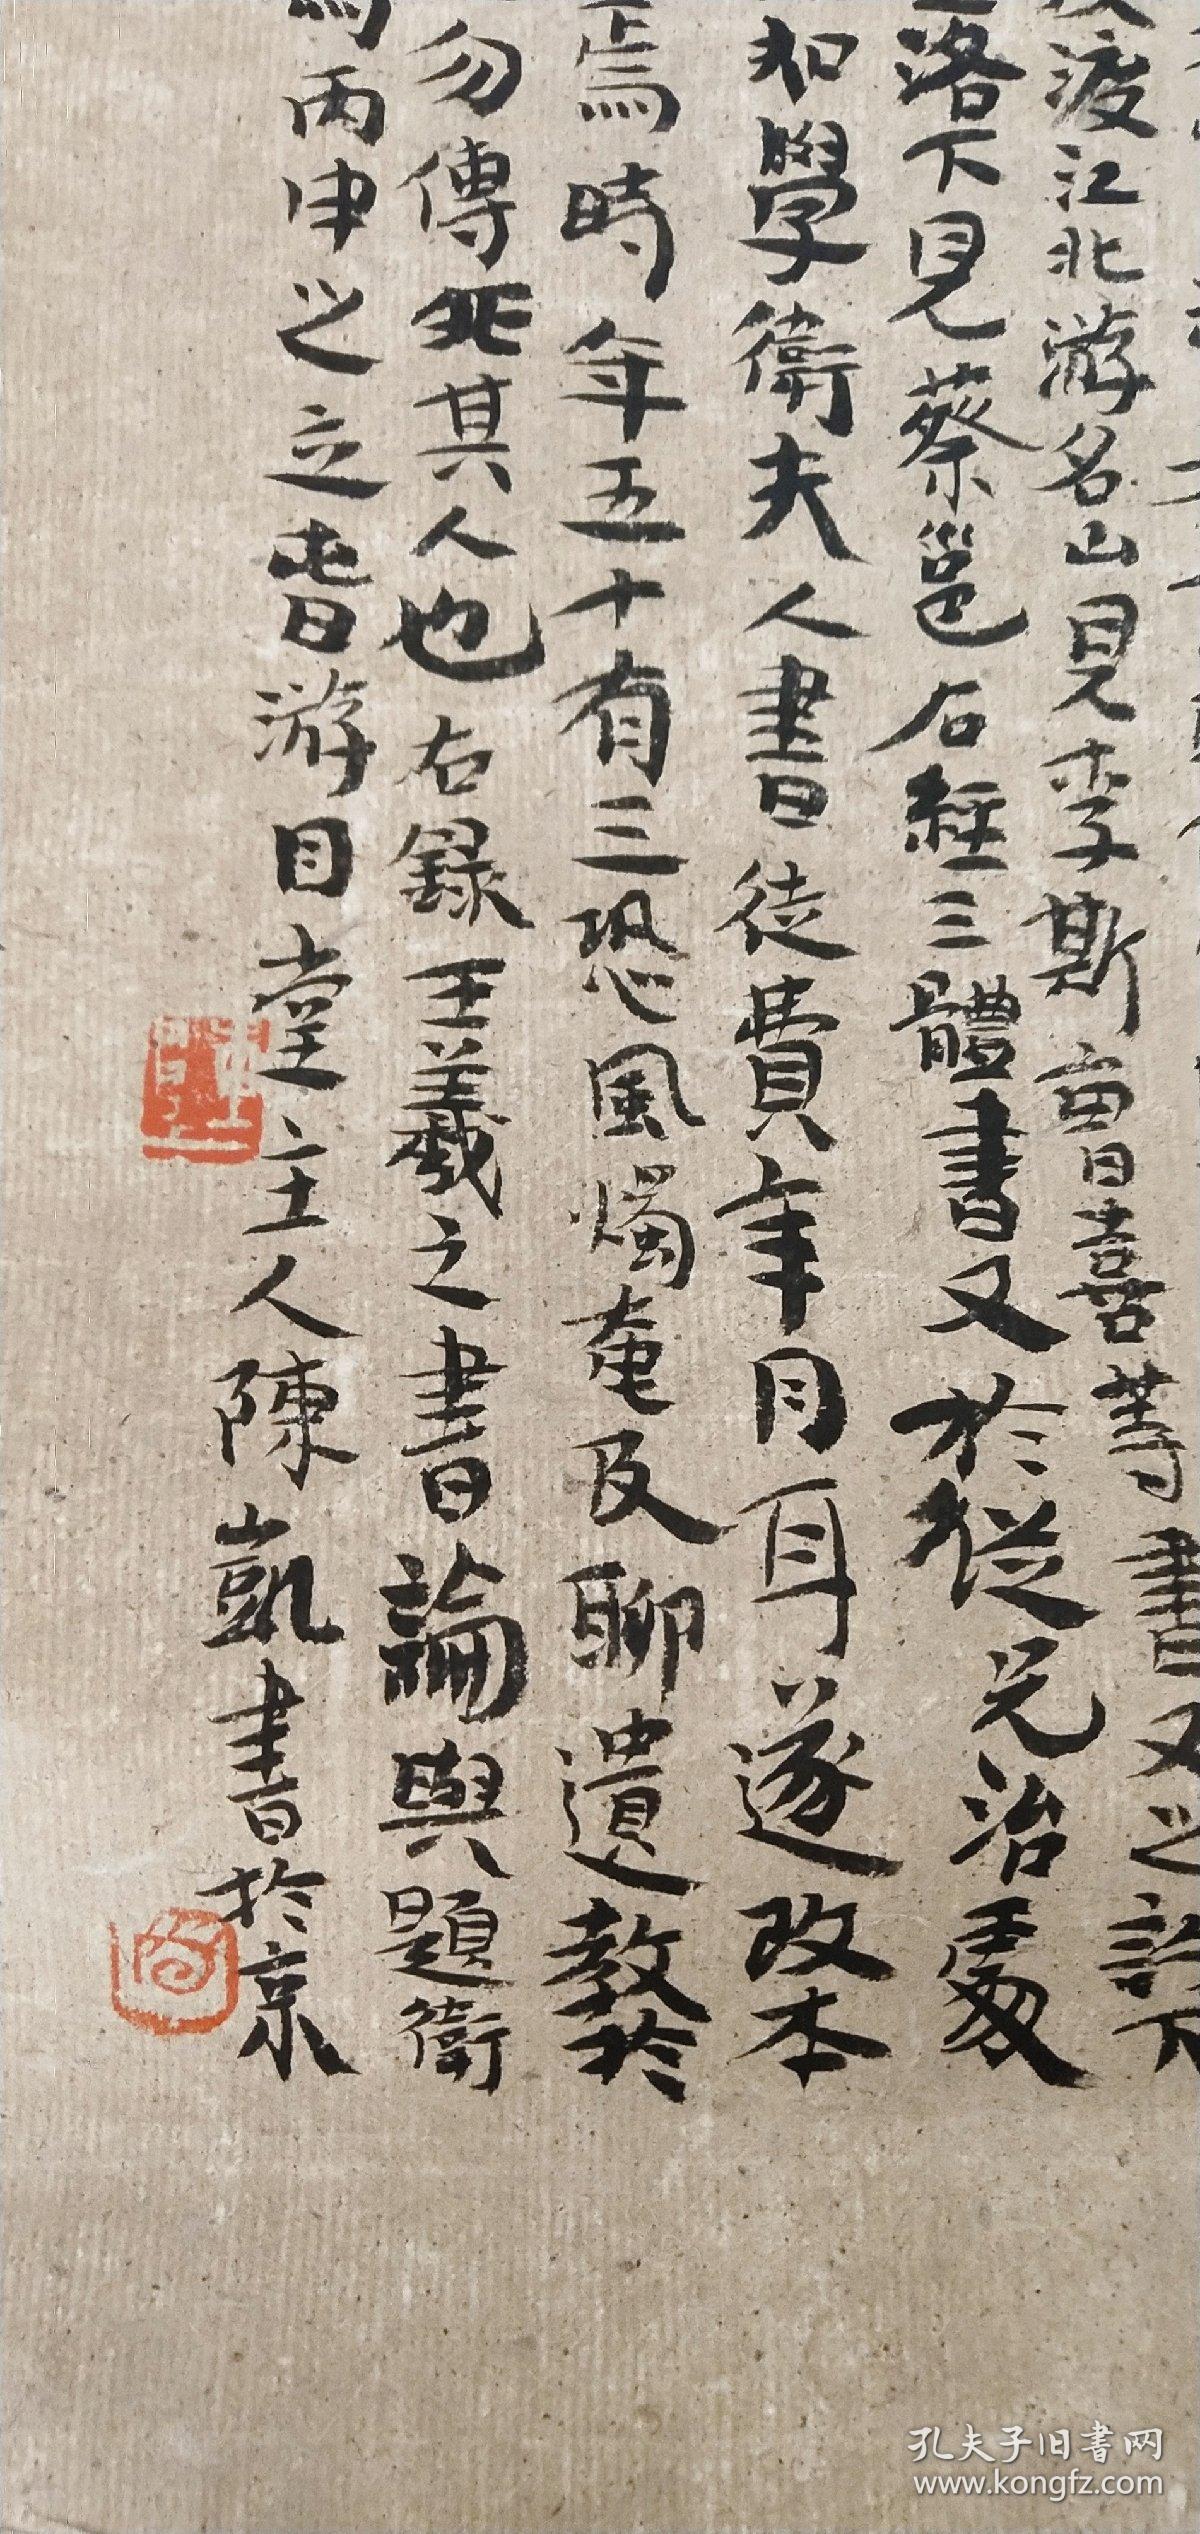 渡江北游名山見李斯曹喜等書又之許下
洛下見蔡邕石經三體書又於從兄洽處
知學衛夫人書徒費年月耳遂改本
焉時年五十有三恐風燭奄及聊遺教於
勿傳非其人也右錄王羲之書論與題衛
丙申之立春游目堂主人陳凱書於京
孔夫子旧书网
www.kongfz.com